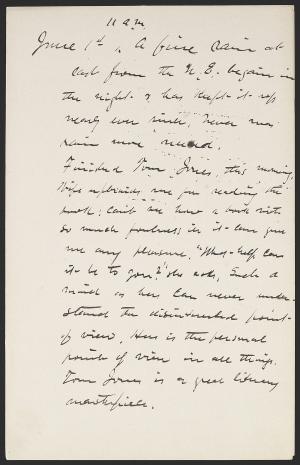 11 a.m.
June 1st, A fine rain at
last from the N.E. began in
the night & has kept it up
nearly ever since, never was
rain more needed.
Finished Tom Jones, this morning,
Wife upbraids me for reading the
book; can't see how a book with
so much foulness in it can give
me any pleasure. "What help can
it be to you?" she asks, Such a
mind as hers can never under-
stand the disinterested point
of view. Hers is the personal
point of view in all things.
Tom Jones is a great literary
masterpiece.